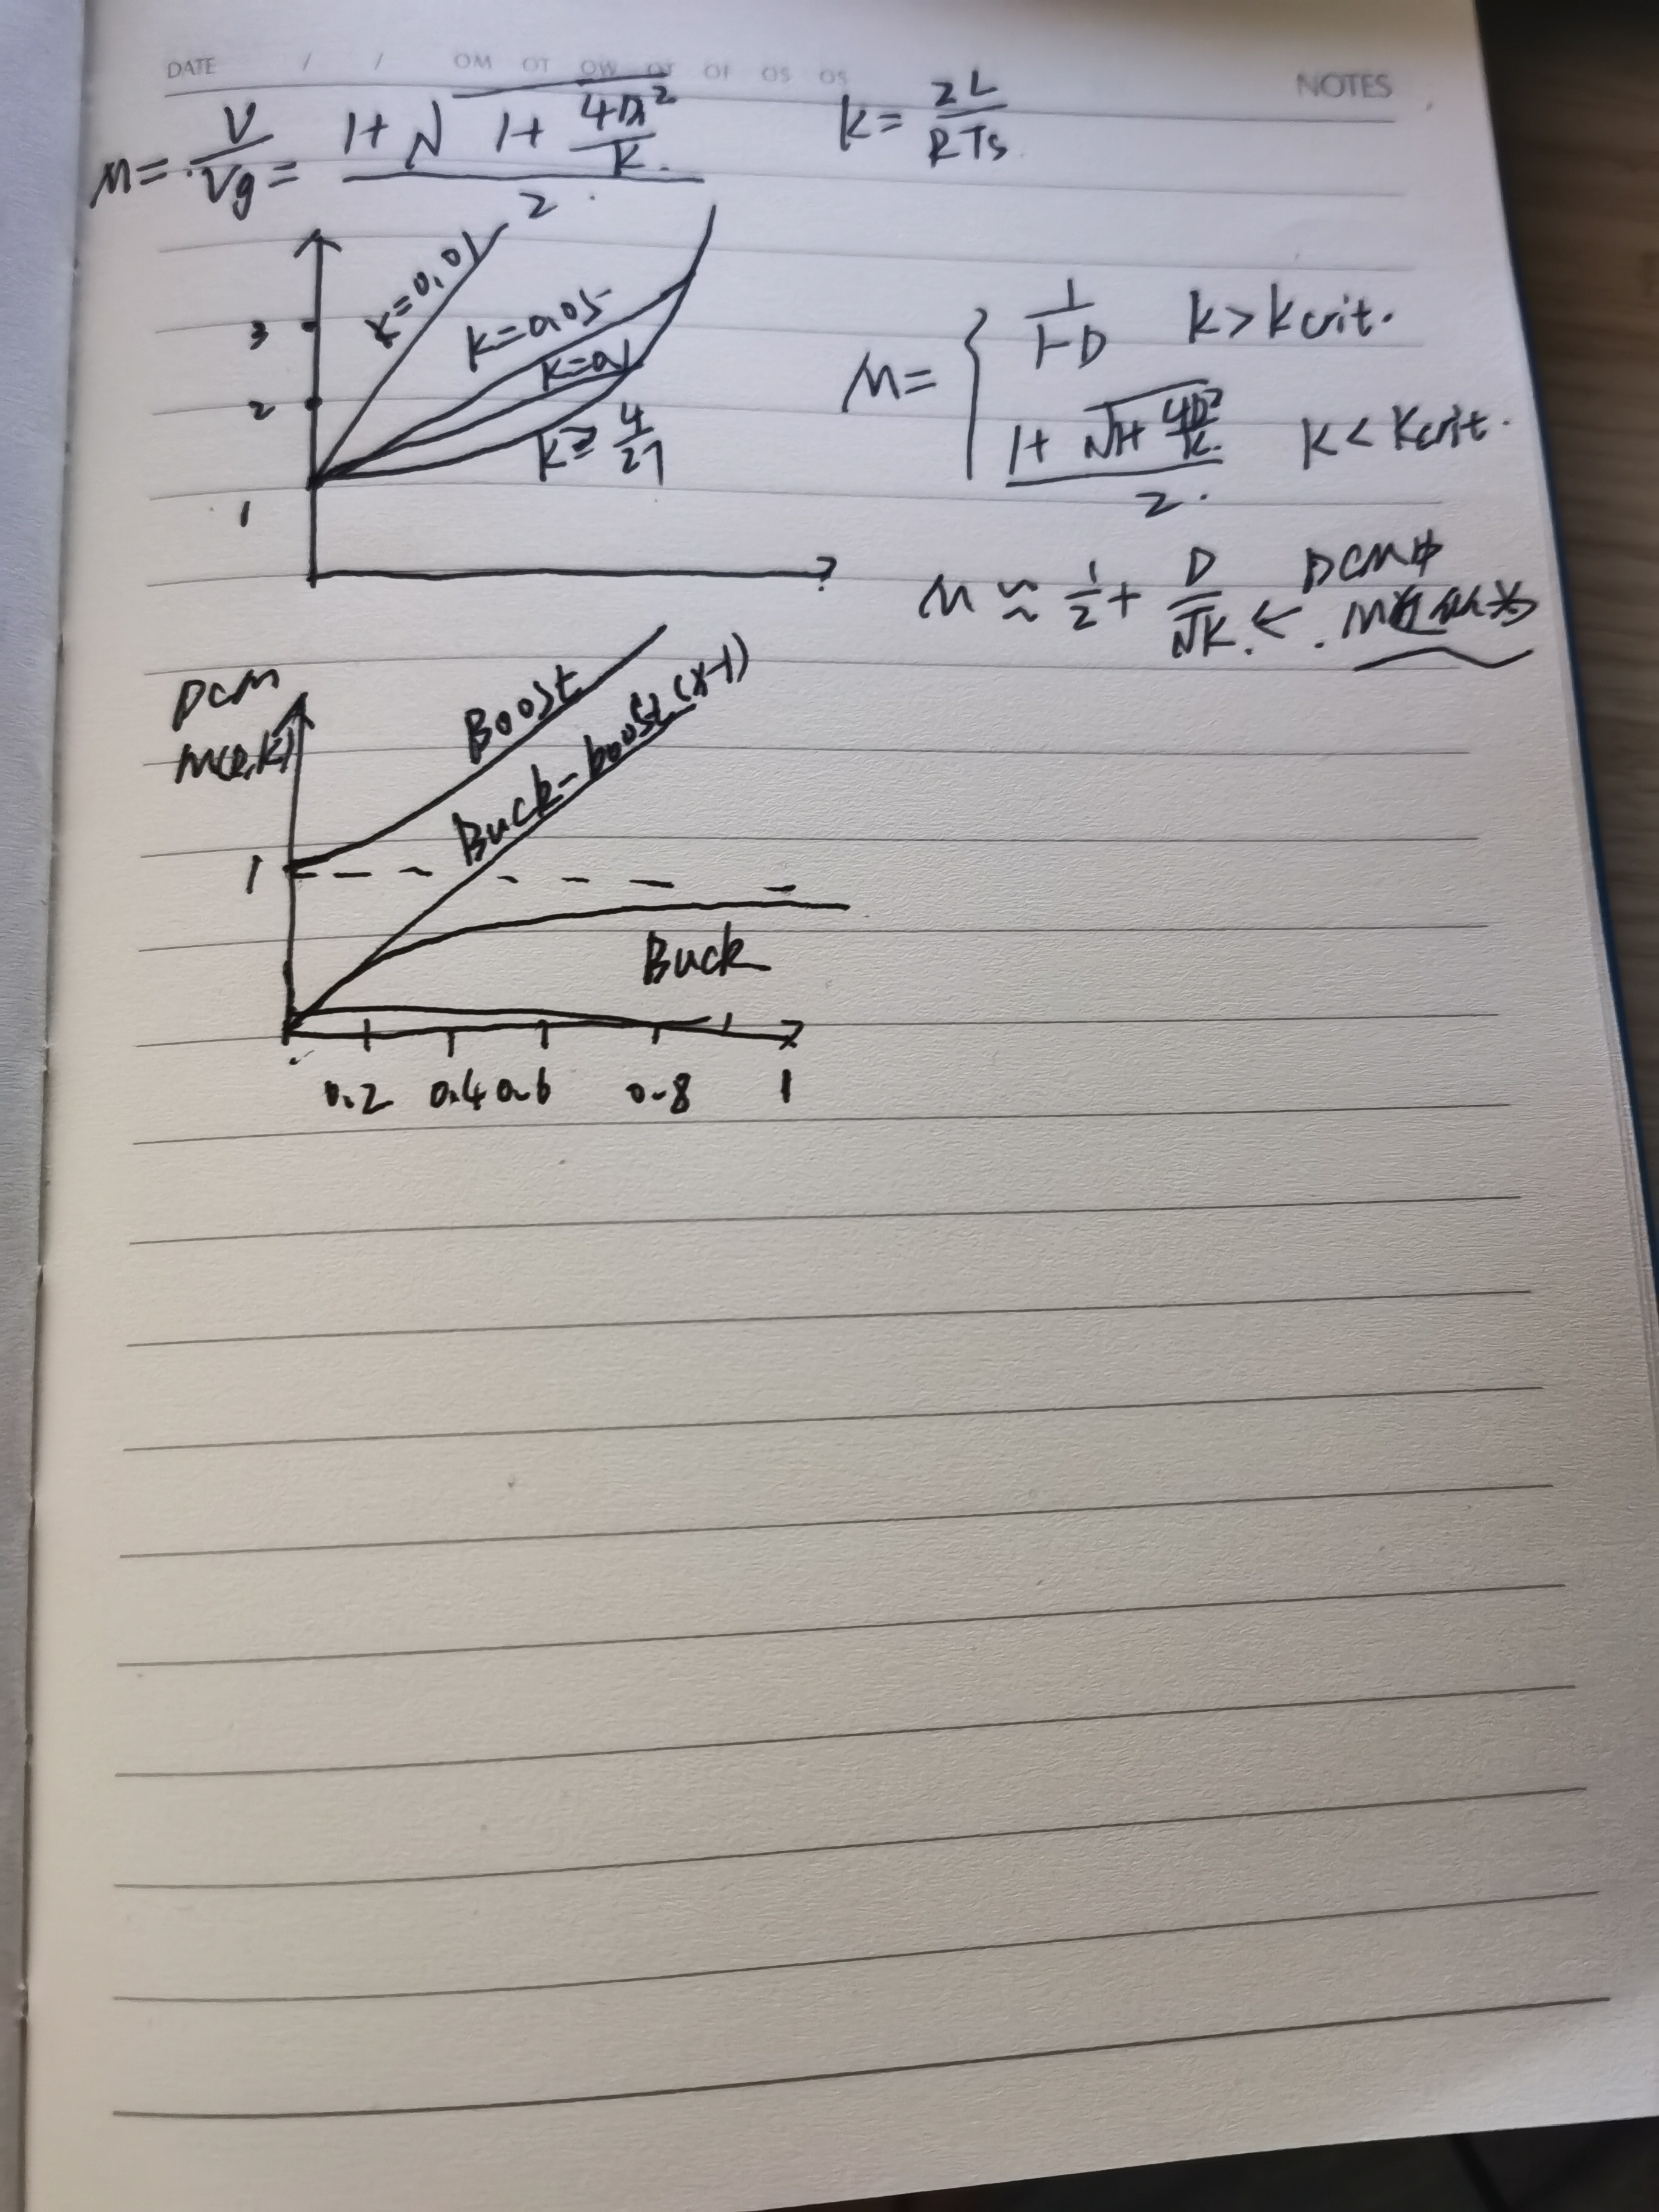 DATE / / OM OT OW OT OF OS OS NOTES
M = V/Vg = (1+√(1+4D²/K))/2
k = 2L/RTs
3
2
1
K=0.01
K=0.05
K=0.1
K≥4/27
M = { 1/(1-D) K>Kcrit.
(1+√(1+4D²/K))/2 K<Kcrit.
M ≈ 1/2 + D/√K ← DCM中
DCM
M(D,K)
Boost
Buck-boost(x-1)
1
Buck
0.2 0.4 0.6 0.8 1